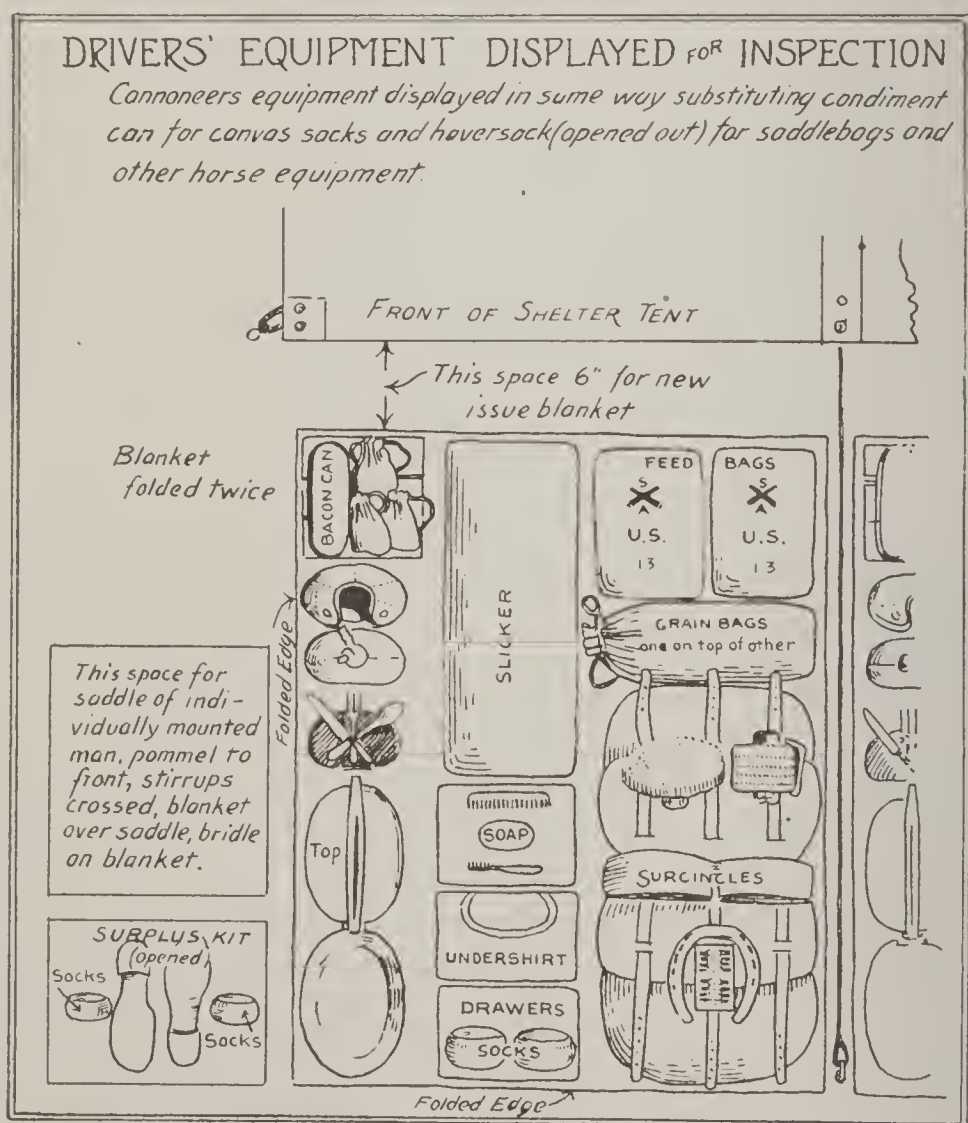 DRIVERS' EQUIPMENT DISPLAYED FOR INSPECTION
Cannoneers equipment displayed in same way substituting condiment
can for canvas sacks and haversack (opened out) for saddlebags and
other horse equipment.
FRONT OF SHELTER TENT
This space 6" for new
issue blanket
Blanket
folded twice
BACON CAN
SLICKER
FEED BAGS
S
A
U.S.
13
S
A
U.S.
13
GRAIN BAGS
one on top of other
Folded Edge
This space for
saddle of indi-
vidually mounted
man, pommel to
front, stirrups
crossed, blanket
over saddle, bridle
on blanket.
Top
SOAP
SURCINCLES
UNDERSHIRT
DRAWERS
SOCKS
SURPLUS KIT
(opened)
Socks
Socks
Folded Edge